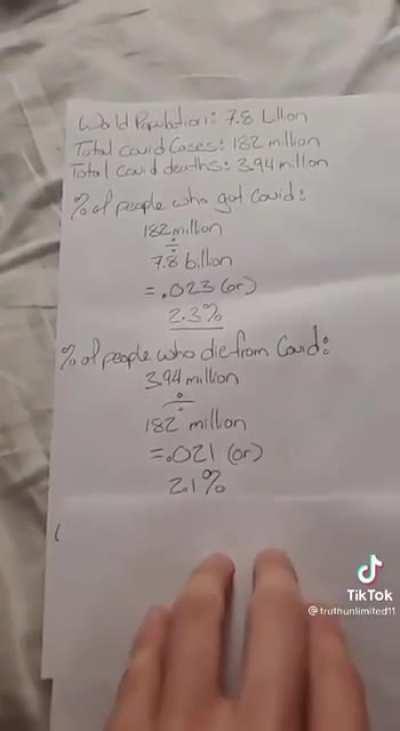 World Population: 7.8 billion
Total Covid Cases: 182 million
Total Covid deaths: 3.94 million
% of people who got Covid:
182 million
÷
7.8 billion
= .023 (or)
2.3%
% of people who die from Covid:
3.94 million
÷
182 million
= .021 (or)
2.1%
(
TikTok
@truthunlimited11